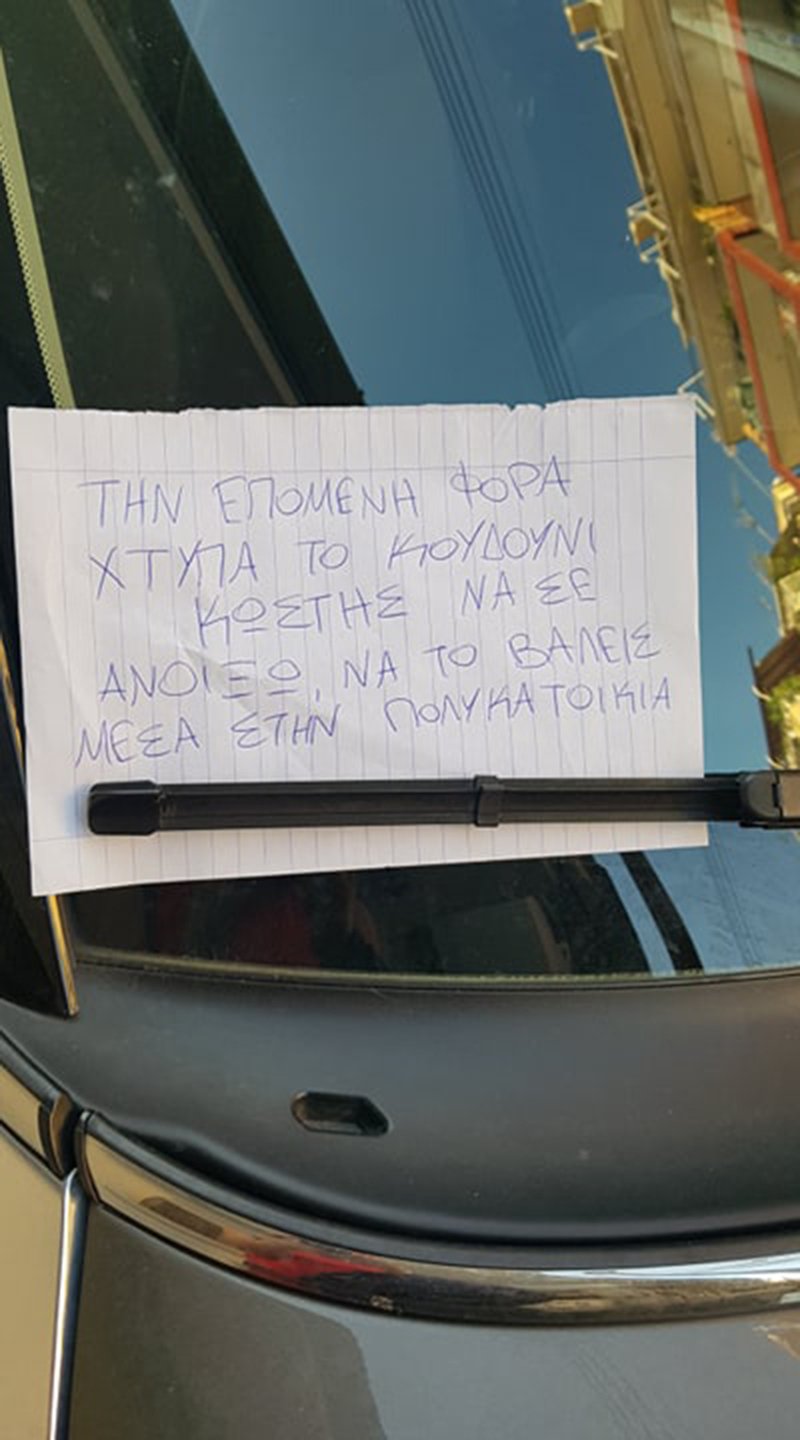 ΤΗΝ ΕΠΟΜΕΝΗ ΦΟΡΑ
ΧΤΥΠΑ ΤΟ ΚΟΥΔΟΥΝΙ
ΚΩΣΤΗΣ ΝΑ ΣΕ
ΑΝΟΙΞΩ, ΝΑ ΤΟ ΒΑΛΕΙΣ
ΜΕΣΑ ΣΤΗΝ ΠΟΛΥΚΑΤΟΙΚΙΑ